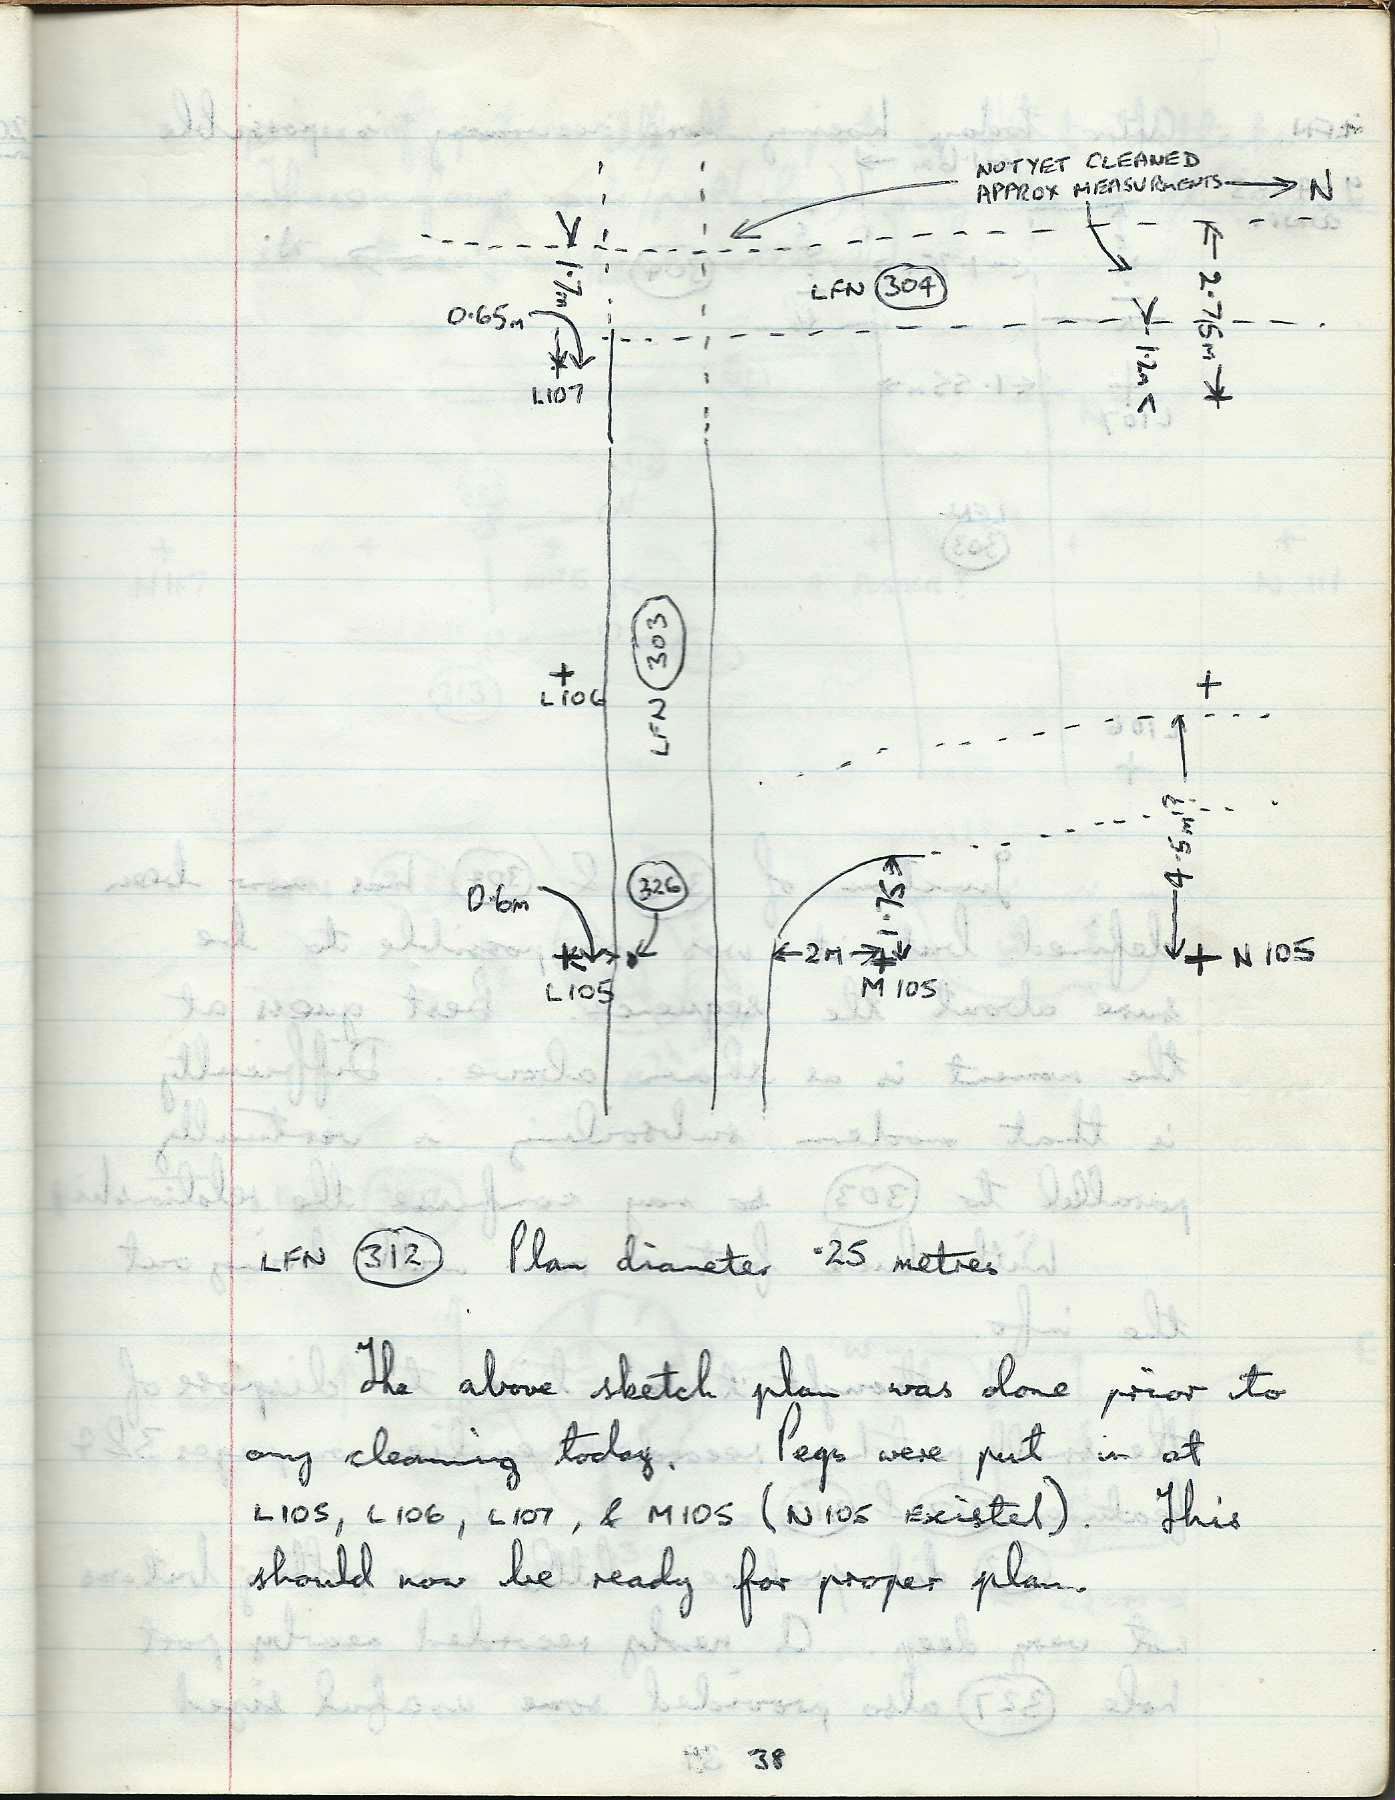 NOT YET CLEANED
APPROX MEASURMENTS → N
1.7m
LFN 304
2.75M
0.65M
1.2M
L107
LFN 303
L106
4.5m?
0.6m
326
1.75
2M
N105
L105
M105
LFN 312 Plan diameter .25 metres
The above sketch plan was done prior to
any cleaning today. Pegs were put in at
L105, L106, L107, & M105 (N105 Existed). This
should now be ready for proper plan.
38